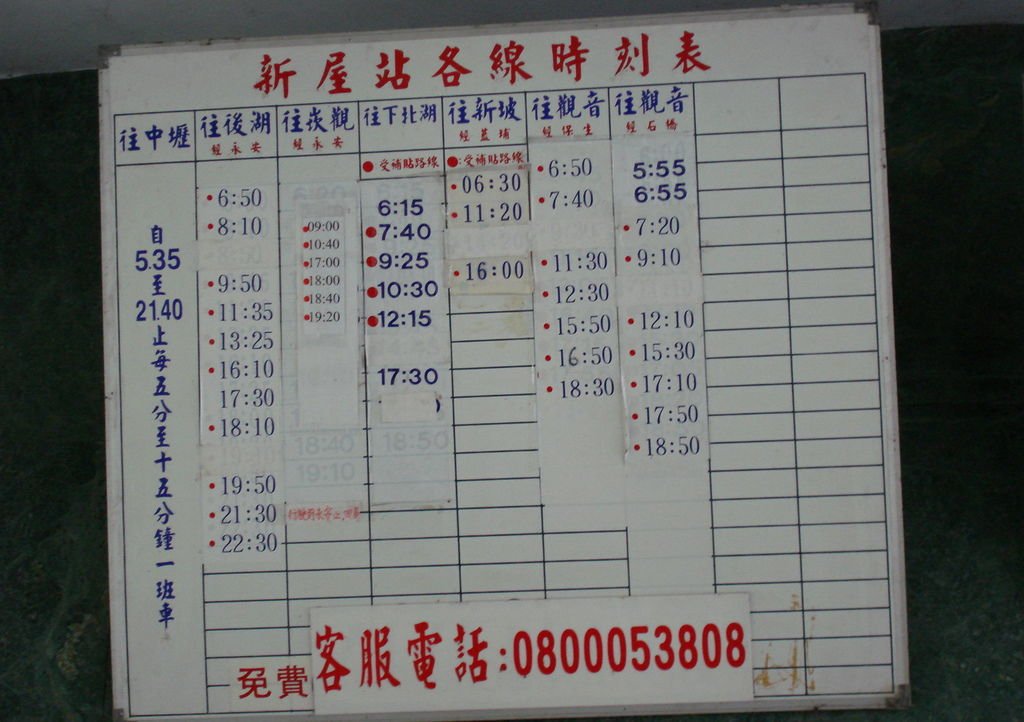 新屋站各線時刻表
往中壢
自
5.35
至
21.40
止每五分至十五分鐘一班車
往後湖
經永安
•6:50
•8:10
•9:50
•11:35
•13:25
•16:10
17:30
•18:10
•19:50
•21:30
•22:30
往崁觀
經永安
•09:00
•10:40
•17:00
•18:00
•18:40
•19:20
18:40
19:10
往下北湖
●受補貼路線
6:15
●7:40
●9:25
●10:30
●12:15
17:30
18:50
往新坡
經藍埔
●:受補貼路線
•06:30
•11:20
•16:00
往觀音
經保生
•6:50
•7:40
•11:30
•12:30
•15:50
•16:50
•18:30
往觀音
經石橋
5:55
6:55
•7:20
•9:10
•12:10
•15:30
•17:10
•17:50
•18:50
免費客服電話:0800053808